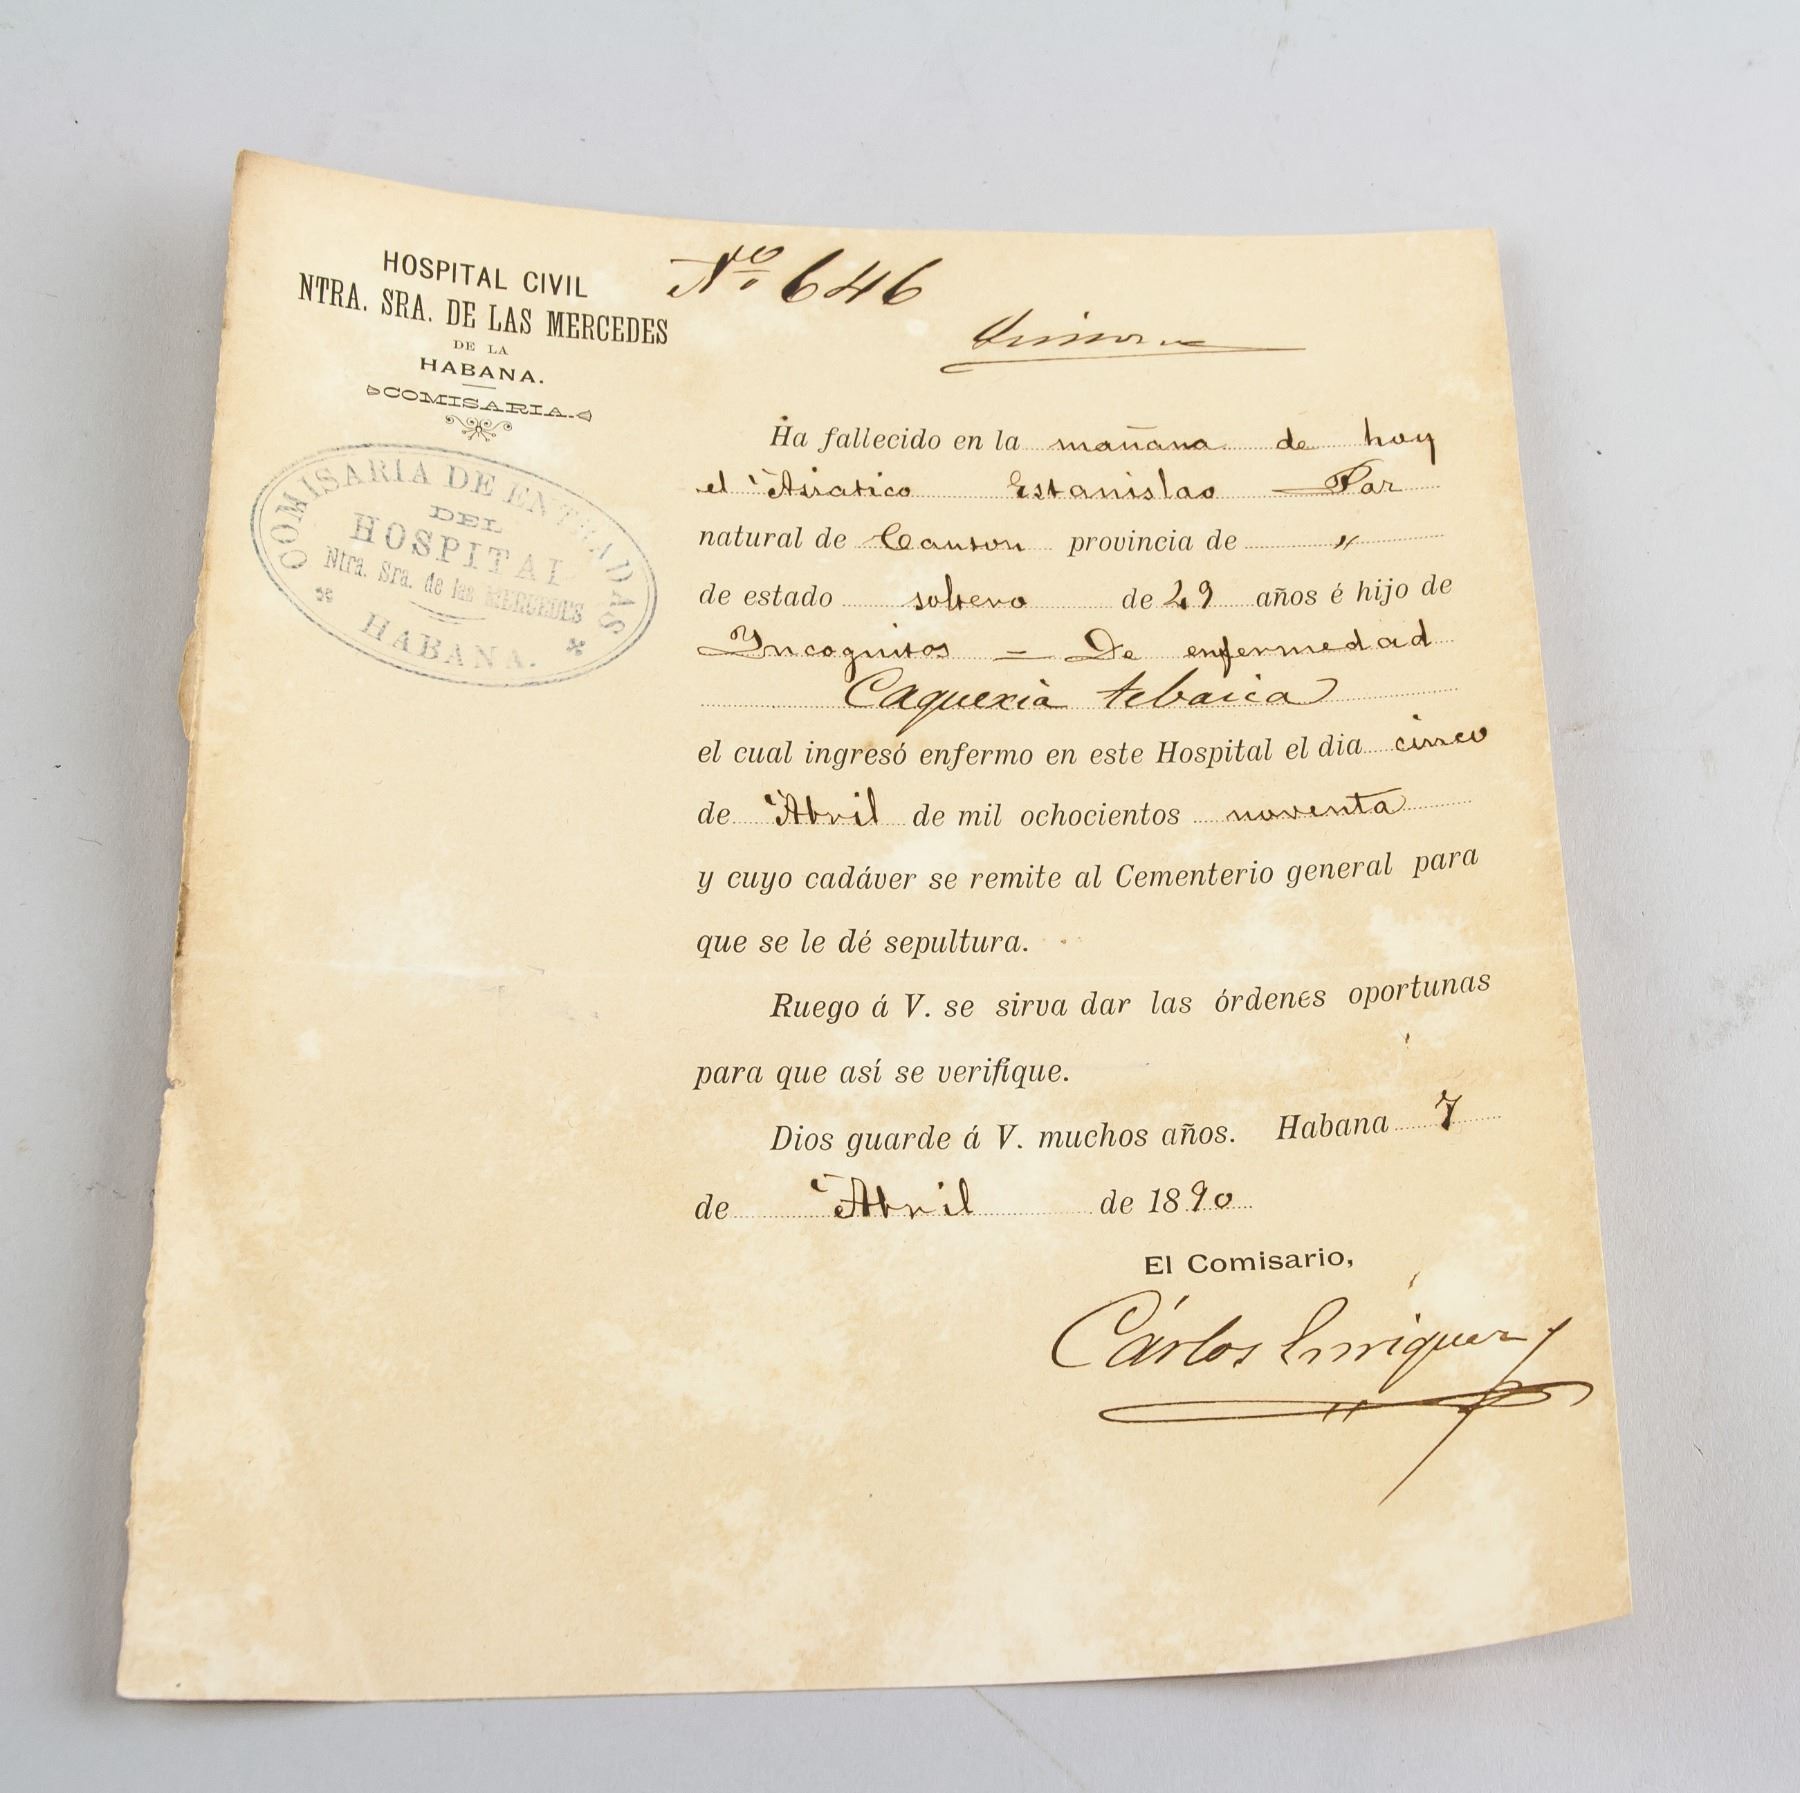 HOSPITAL CIVIL
NTRA. SRA. DE LAS MERCEDES
DE LA
HABANA.
COMISARIA.
COMISARIA DE ENTRADAS
DEL
HOSPITAL
Ntra. Sra. de las MERCEDES
HABANA.
Nº 646
Ha fallecido en la mañana de hoy
el Asiatico Estanislao Par
natural de Canton provincia de "
de estado soltero de 29 años é hijo de
Yncognitos = De enfermedad
Caquexia tebaica
el cual ingresó enfermo en este Hospital el dia cinco
de Abril de mil ochocientos noventa
y cuyo cadáver se remite al Cementerio general para
que se le dé sepultura.
Ruego á V. se sirva dar las órdenes oportunas
para que así se verifique.
Dios guarde á V. muchos años. Habana 7
de Abril de 1890
El Comisario,
Cárlos Enriquez